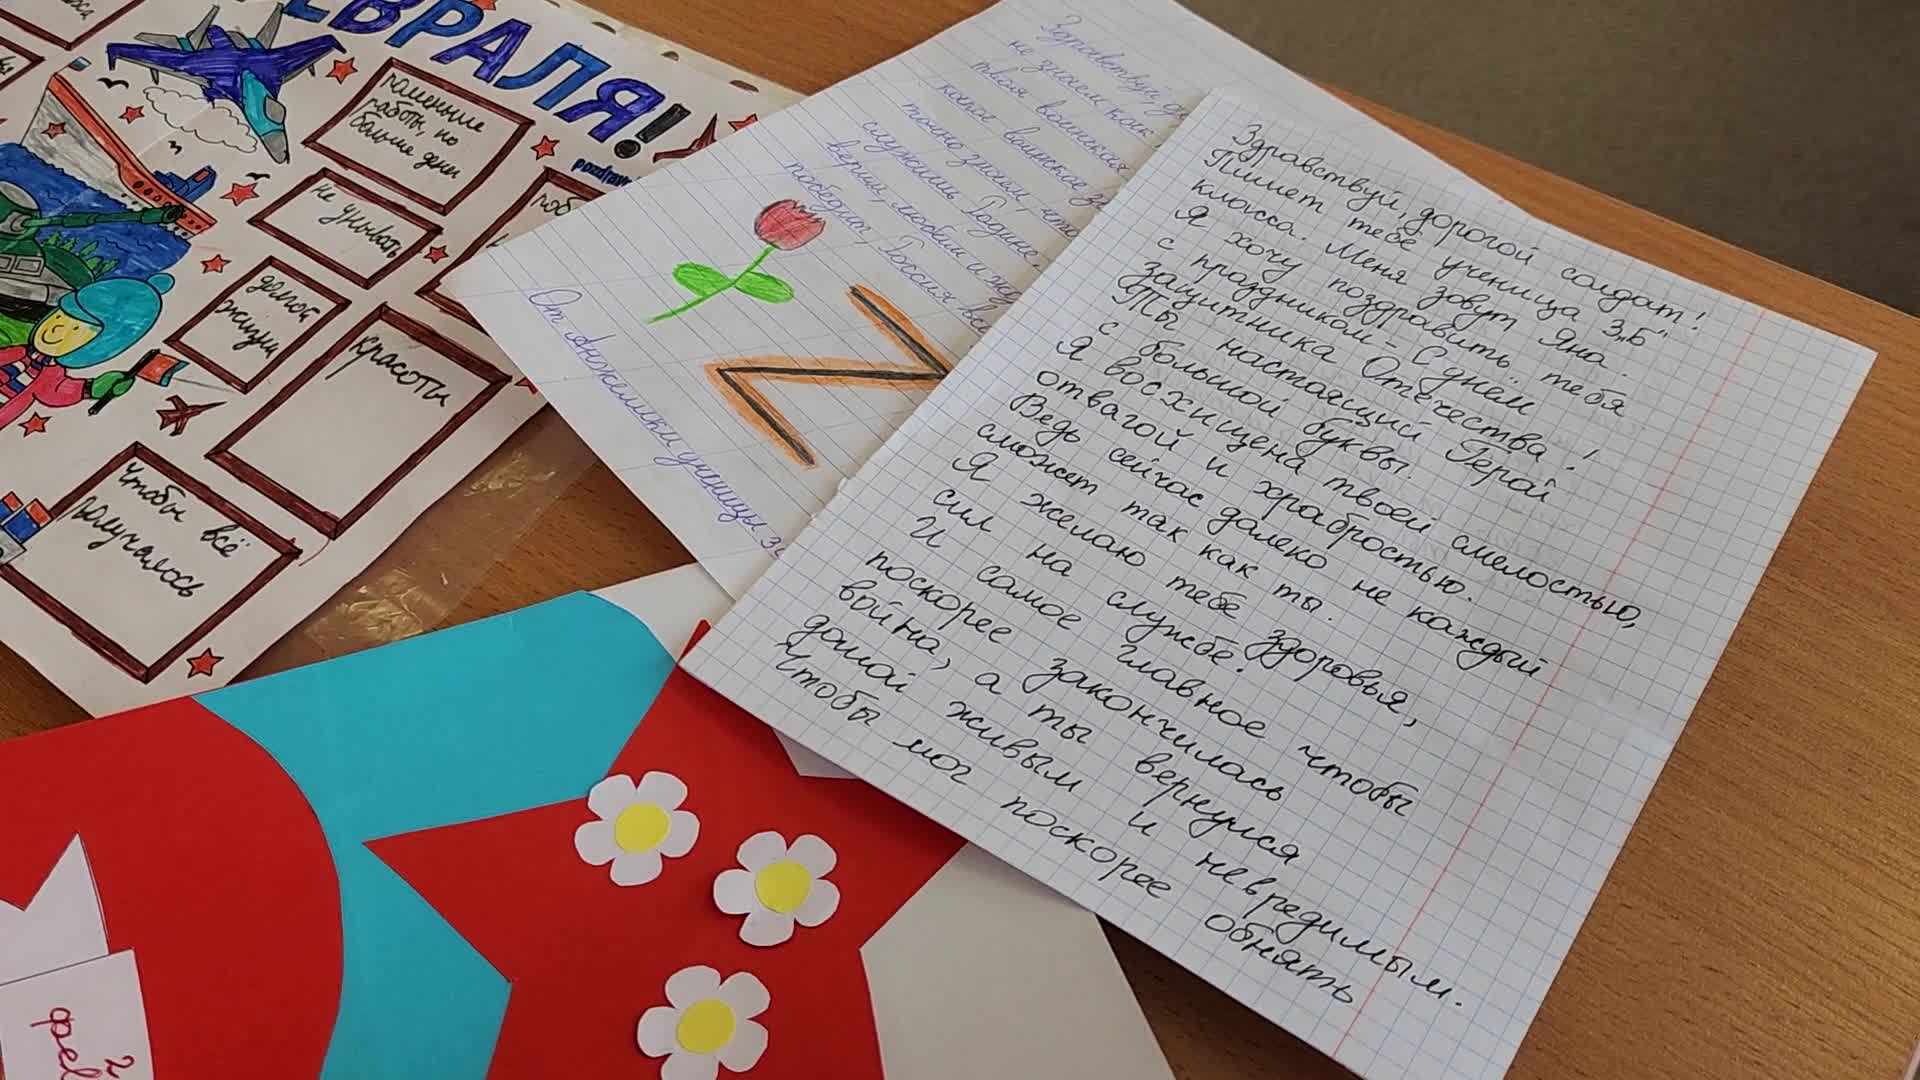 ЕВРАЛЯ!
поменьше
работы, но
больше денег
не унывать
долгой
жизни
красоты
Чтобы всё
получилось
Здравствуй,
не знаем как
твоя воинская
какое воинское
точно знаем, что
служишь Родине.
верим, любим и
победит, Россия
От Анжелики ученицы
Здравствуй, дорогой солдат!
Пишет тебе ученица 3„Б"
класса. Меня зовут Яна.
Я хочу поздравить тебя
с праздником - С днём
защитника Отечества!
Ты настоящий Герой
с большой буквы.
Я восхищена твоей смелостью,
отвагой и храбростью.
Ведь сейчас далеко не каждый
сможет так как ты.
Я желаю тебе здоровья,
сил на службе!
И самое главное чтобы
поскорее закончилась
война, а ты вернулся
домой живым и невредимым.
Чтобы мог поскорее обнять
2
фев